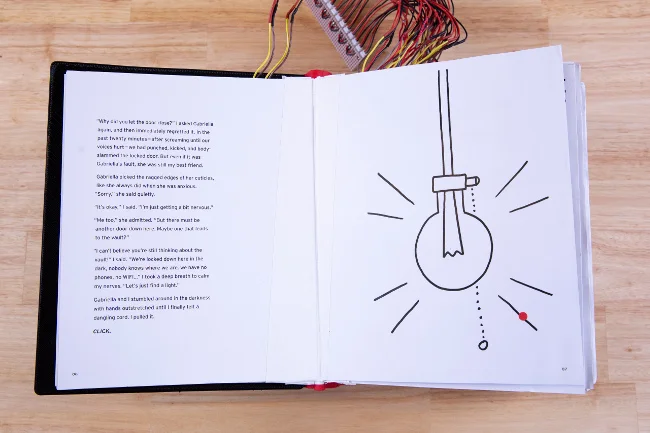 "Why did you let the door close?" I asked Gabriella
again, and then immediately regretted it. In the
past twenty minutes—after screaming until our
voices hurt—we had punched, kicked, and body-
slammed the locked door. But even if it was
Gabriella's fault, she was still my best friend.
Gabriella picked the ragged edges of her cuticles,
like she always did when she was anxious.
"Sorry," she said quietly.
"It's okay," I said. "I'm just getting a bit nervous."
"Me too," she admitted. "But there must be
another door down here. Maybe one that leads
to the vault?"
"I can't believe you're still thinking about the
vault!" I said. "We're locked down here in the
dark, nobody knows where we are, we have no
phones, no WiFi..." I took a deep breath to calm
my nerves. "Let's just find a light."
Gabriella and I stumbled around in the darkness
with hands outstretched until I finally felt a
dangling cord. I pulled it.
CLICK.